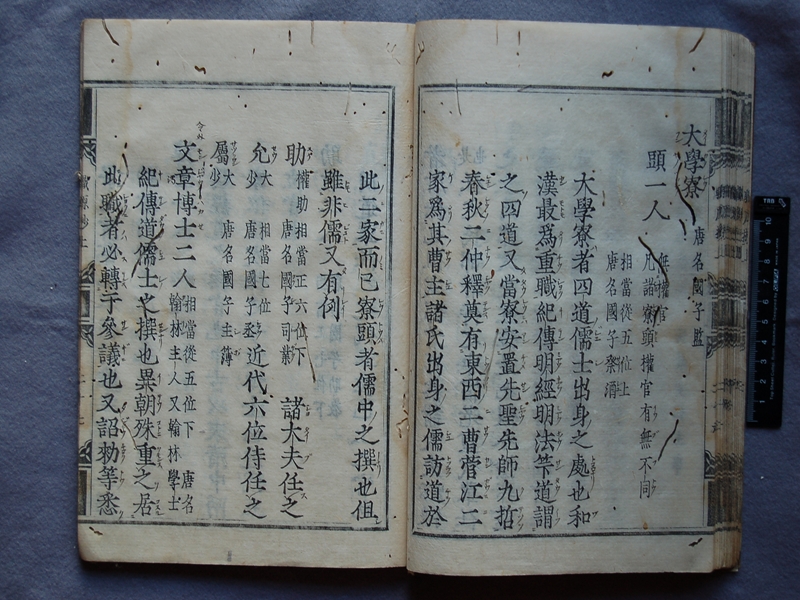 大學寮 唐名國子監
頭一人
無權官
凡諸寮頭權官有無不同
相當從五位上
唐名國子祭酒
大學寮者四道儒士出身之處也和
漢最爲重職紀傳明經明法筭道謂
之四道又當寮安置先聖先師九哲
春秋二仲釋奠有東西二曹菅江二
家爲其曹主諸氏出身之儒訪道於
此二家而已寮頭者儒中之撰也但
雖非儒又有例
助 權助相當正六位下
唐名國子司業
諸大夫任之
允 大 相當七位
少 唐名國子丞
近代六位侍任之
屬 大
少 唐名國子主簿
文章博士二人
相當從五位下 唐名
翰林主人又翰林學士
紀傳道儒士之撰也異朝殊重之居
此職者必轉于參議也又詔勅等悉